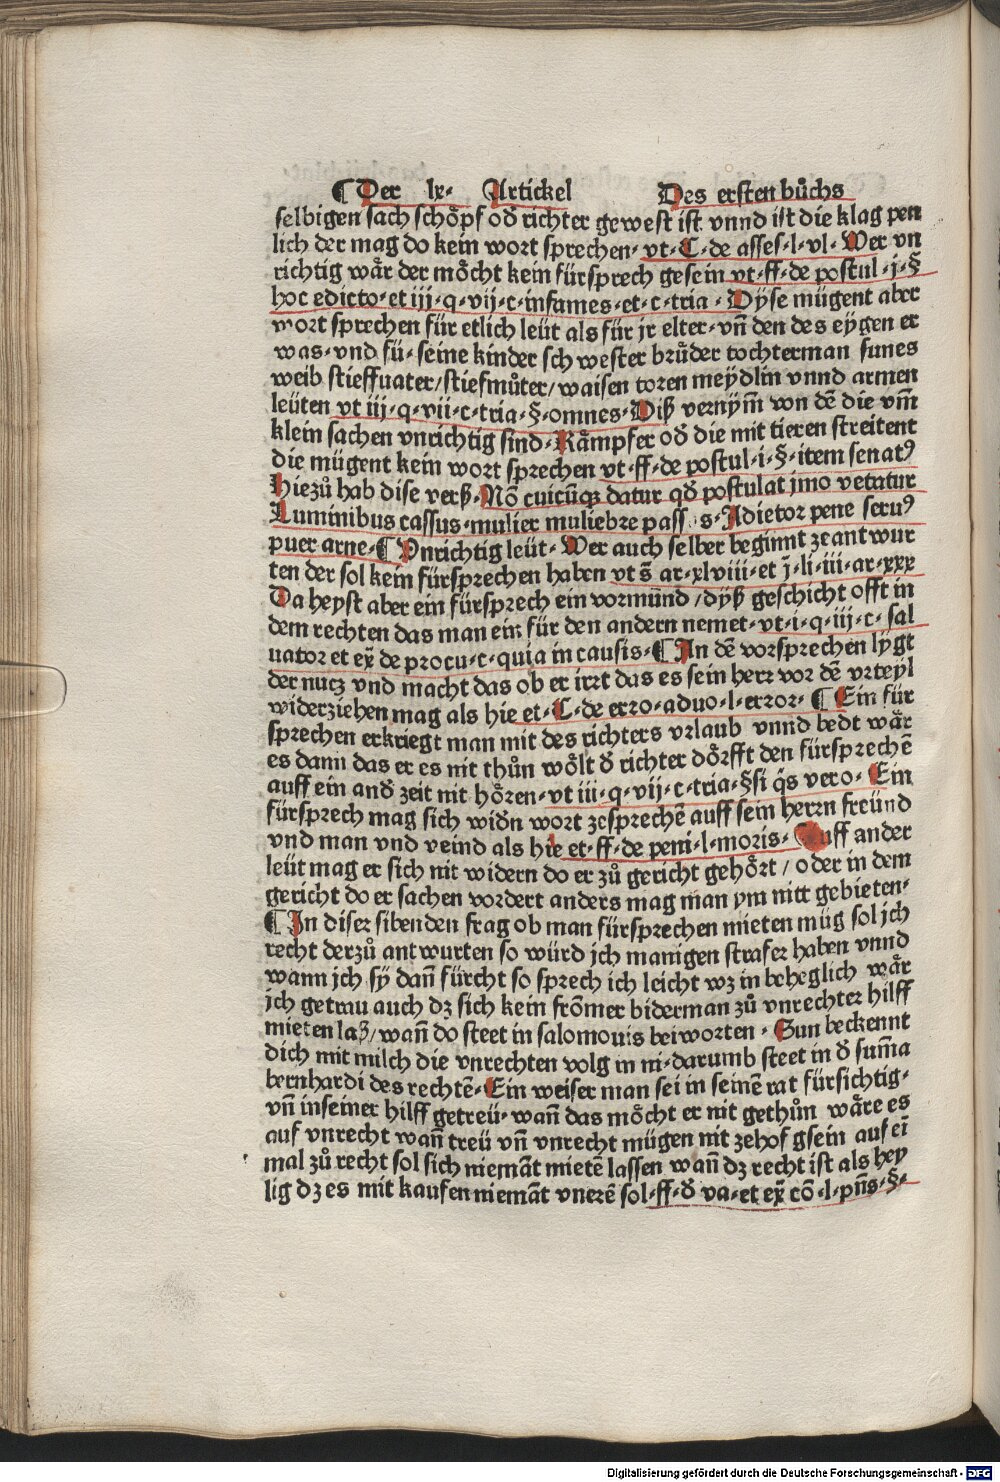 ¶Der lx· Artickel Des ersten bůchs
selbigen sach schöpf oď richter gewest ist vnnd ist die klag pen
lich der mag do kein wort sprechen· vt·C·de asses·l·vl· Wer vn
richtig wår der möcht kein fürsprech gesein vt·ff·de postul·j·§
hoc edicto·et iij·q·vij·c·infames·et·c·tria· Dyse mügent aber
wort sprechen für etlich leüt als für jr elter·vñ den des eygen er
was·vnd fü·seine kinder schwester brůder tochterman sunes
weib stieffuater/stiefmůter/waisen toren meydlin vnnd armen
leüten vt iij·q·vii·c·tria·§·omnes·Diß vernym̄ von dē die vm̄
klein sachen vnrichtig sind·Kåmpfer oď die mit tieren streitent
die mügent kein wort sprechen vt·ff·de postul·i·§·item senatꝰ
Hiezů hab dise verß·Nō cuicūqꝫ datur qď postulat jmo vetatur
Luminibus cassus·mulier muliebre pass s·Adietor pene seruꝰ
puer arne·¶Vnrichtig leüt·Wer auch selber beginnt ze antwur
ten der sol kein fürsprechen haben vt s̄ ar·xlviii·et j·li·iii·ar·xxx
Da heyst aber ein fürsprech ein vormünd/dyß geschicht offt in
dem rechten das man ein für den andern nemet·vt·i·q·iij·c·sal
uator et ex̄ de procu·c·quia in causis·¶In dē vorsprechen lygt
der nucz vnd macht das ob er irrt das es sein herr vor dē vrteyl
widerziehen mag als hie et·C·de erro·aduo·l·error·¶Ein für
sprechen erkriegt man mit des richters vrlaub vnnd bedt wår
es dann das er es nit thůn wölt ď richter dörfft den fürsprechē
auff ein anď zeit nit hören·vt iii·q·vij·c·tria·§si q̄s vero·Ein
fürsprech mag sich widn wort zesprechē auff sein herrn freünd
vnd man vnd veind als hie et·ff·de peni·l·moris· Auff ander
leüt mag er sich nit widern do er zů gericht gehört/oder in dem
gericht do er sachen vordert anders mag man ym nitt gebieten·
¶In diser sibenden frag ob man fürsprechen mieten müg sol jch
recht derzů antwurten so würd jch manigen strafer haben vnnd
wann jch sÿ dañ fürcht so sprech ich leicht wz in beheglich wår
jch getrau auch dz sich kein frōmer biderman zů vnrechter hilff
mieten laß/wañ do steet in salomonis beiworten·Sun beckennt
dich mit milch die vnrechten volg in ni·darumb steet in ď sum̄a
bernhardi des rechtē·Ein weiser man sei in seinē rat fürsichtig·
vñ inseiner hilff getreü·wañ das möcht er nit gethůn wåre es
auf vnrecht wañ treü vñ vnrecht mügen nit zehof gsein auf eī
mal zů recht sol sich niemāt mietē lassen wañ dz recht ist als hey
lig dz es mit kaufen niemāt vnerē sol·ff·ď va·et ex̄ cō·l·pn̄s·§·
Digitalisierung gefördert durch die Deutsche Forschungsgemeinschaft · DFG